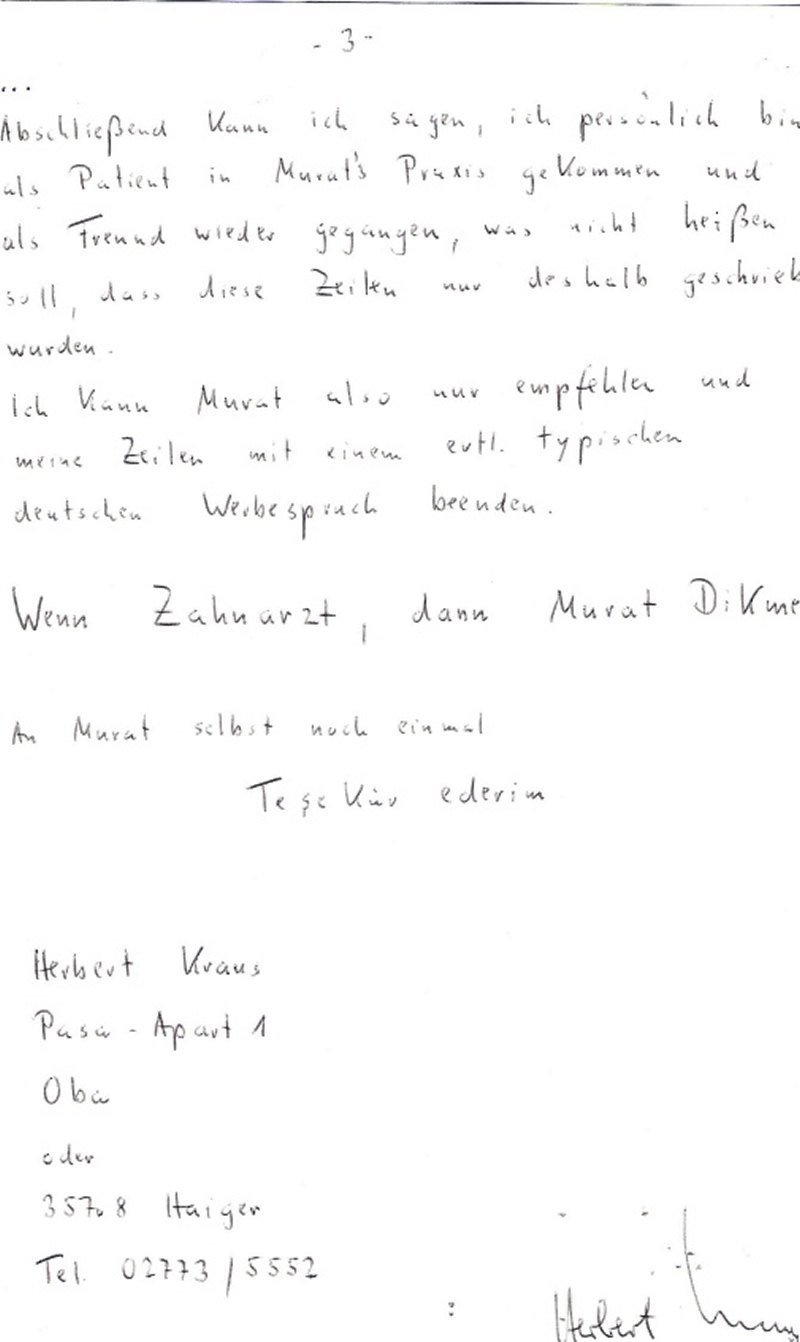 - 3 -
...
Abschließend kann ich sagen, ich persönlich bin
als Patient in Murat's Praxis gekommen und
als Freund wieder gegangen, was nicht heißen
soll, dass diese Zeilen nur deshalb geschrieb
wurden.
Ich kann Murat also nur empfehlen und
meine Zeilen mit einem evtl. typischen
deutschen Werbespruch beenden.
Wenn Zahnarzt, dann Murat Dikme
An Murat selbst noch einmal
Teşekür ederim
Herbert Kraus
Pasa - Apart 1
Oba
oder
35708 Haiger
Tel. 02773 / 5552
Herbert